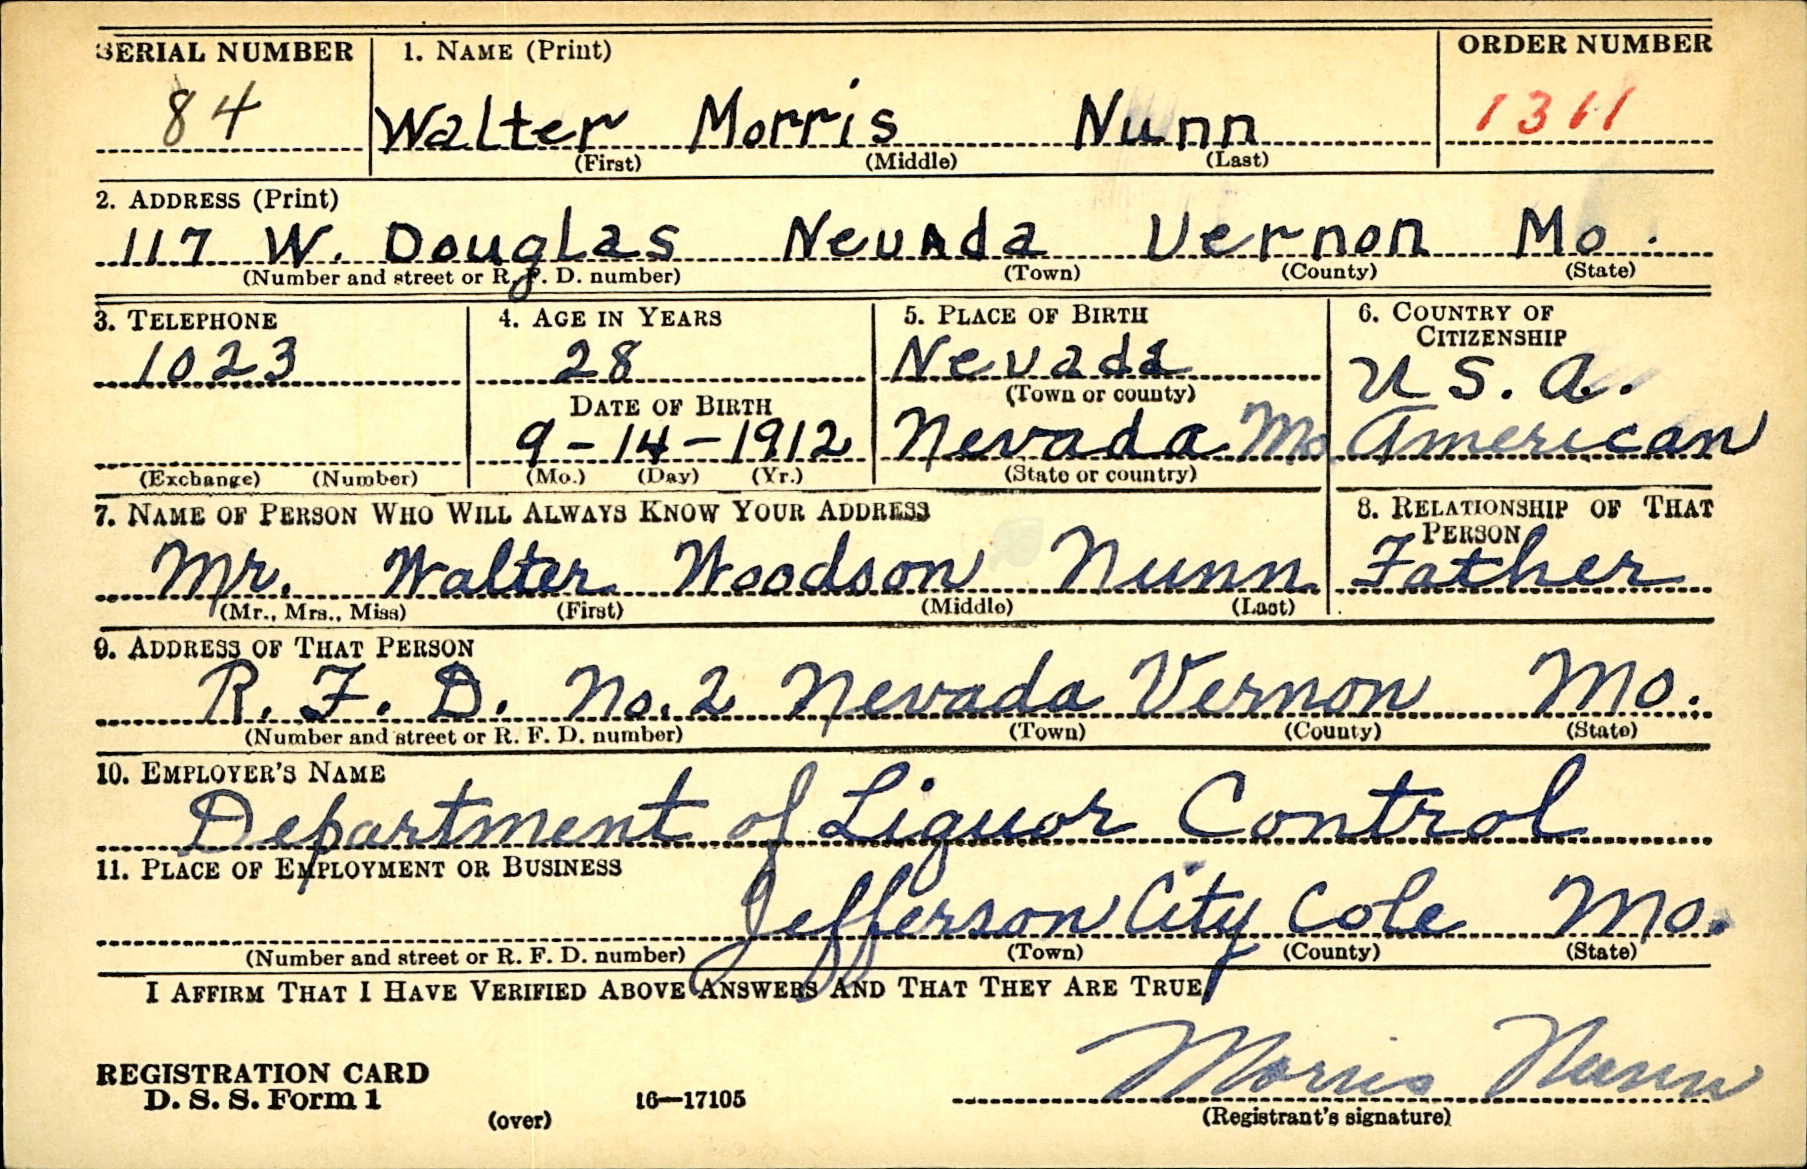 SERIAL NUMBER 1. NAME (Print) ORDER NUMBER
84 Walter Morris Nunn 1311
(First) (Middle) (Last)
2. ADDRESS (Print)
117 W. Douglas Nevada Vernon Mo.
(Number and street or R. F. D. number) (Town) (County) (State)
3. TELEPHONE 4. AGE IN YEARS 5. PLACE OF BIRTH 6. COUNTRY OF CITIZENSHIP
1023 28 Nevada U S. A.
(Town or county)
DATE OF BIRTH
9-14-1912 Nevada Mo. American
(Exchange) (Number) (Mo.) (Day) (Yr.) (State or country)
7. NAME OF PERSON WHO WILL ALWAYS KNOW YOUR ADDRESS 8. RELATIONSHIP OF THAT PERSON
Mr. Walter Woodson Nunn Father
(Mr., Mrs., Miss) (First) (Middle) (Last)
9. ADDRESS OF THAT PERSON
R. F. D. No. 2 Nevada Vernon Mo.
(Number and street or R. F. D. number) (Town) (County) (State)
10. EMPLOYER'S NAME
Department of Liquor Control
11. PLACE OF EMPLOYMENT OR BUSINESS
Jefferson City Cole Mo.
(Number and street or R. F. D. number) (Town) (County) (State)
I AFFIRM THAT I HAVE VERIFIED ABOVE ANSWERS AND THAT THEY ARE TRUE.
Morris Nunn
REGISTRATION CARD
D. S. S. Form 1 16—17105
(over) (Registrant's signature)